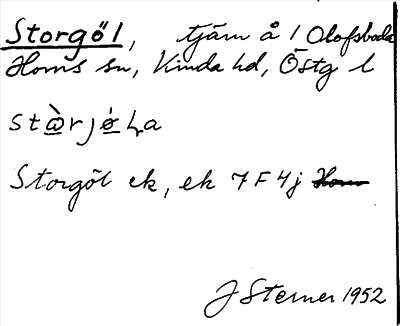 Storgöl, tjärn å / Olofsboda
Horns sn, Kinda hd, Östg l
Storgöl ek, ek 7 F 4j
J Sterner 1952